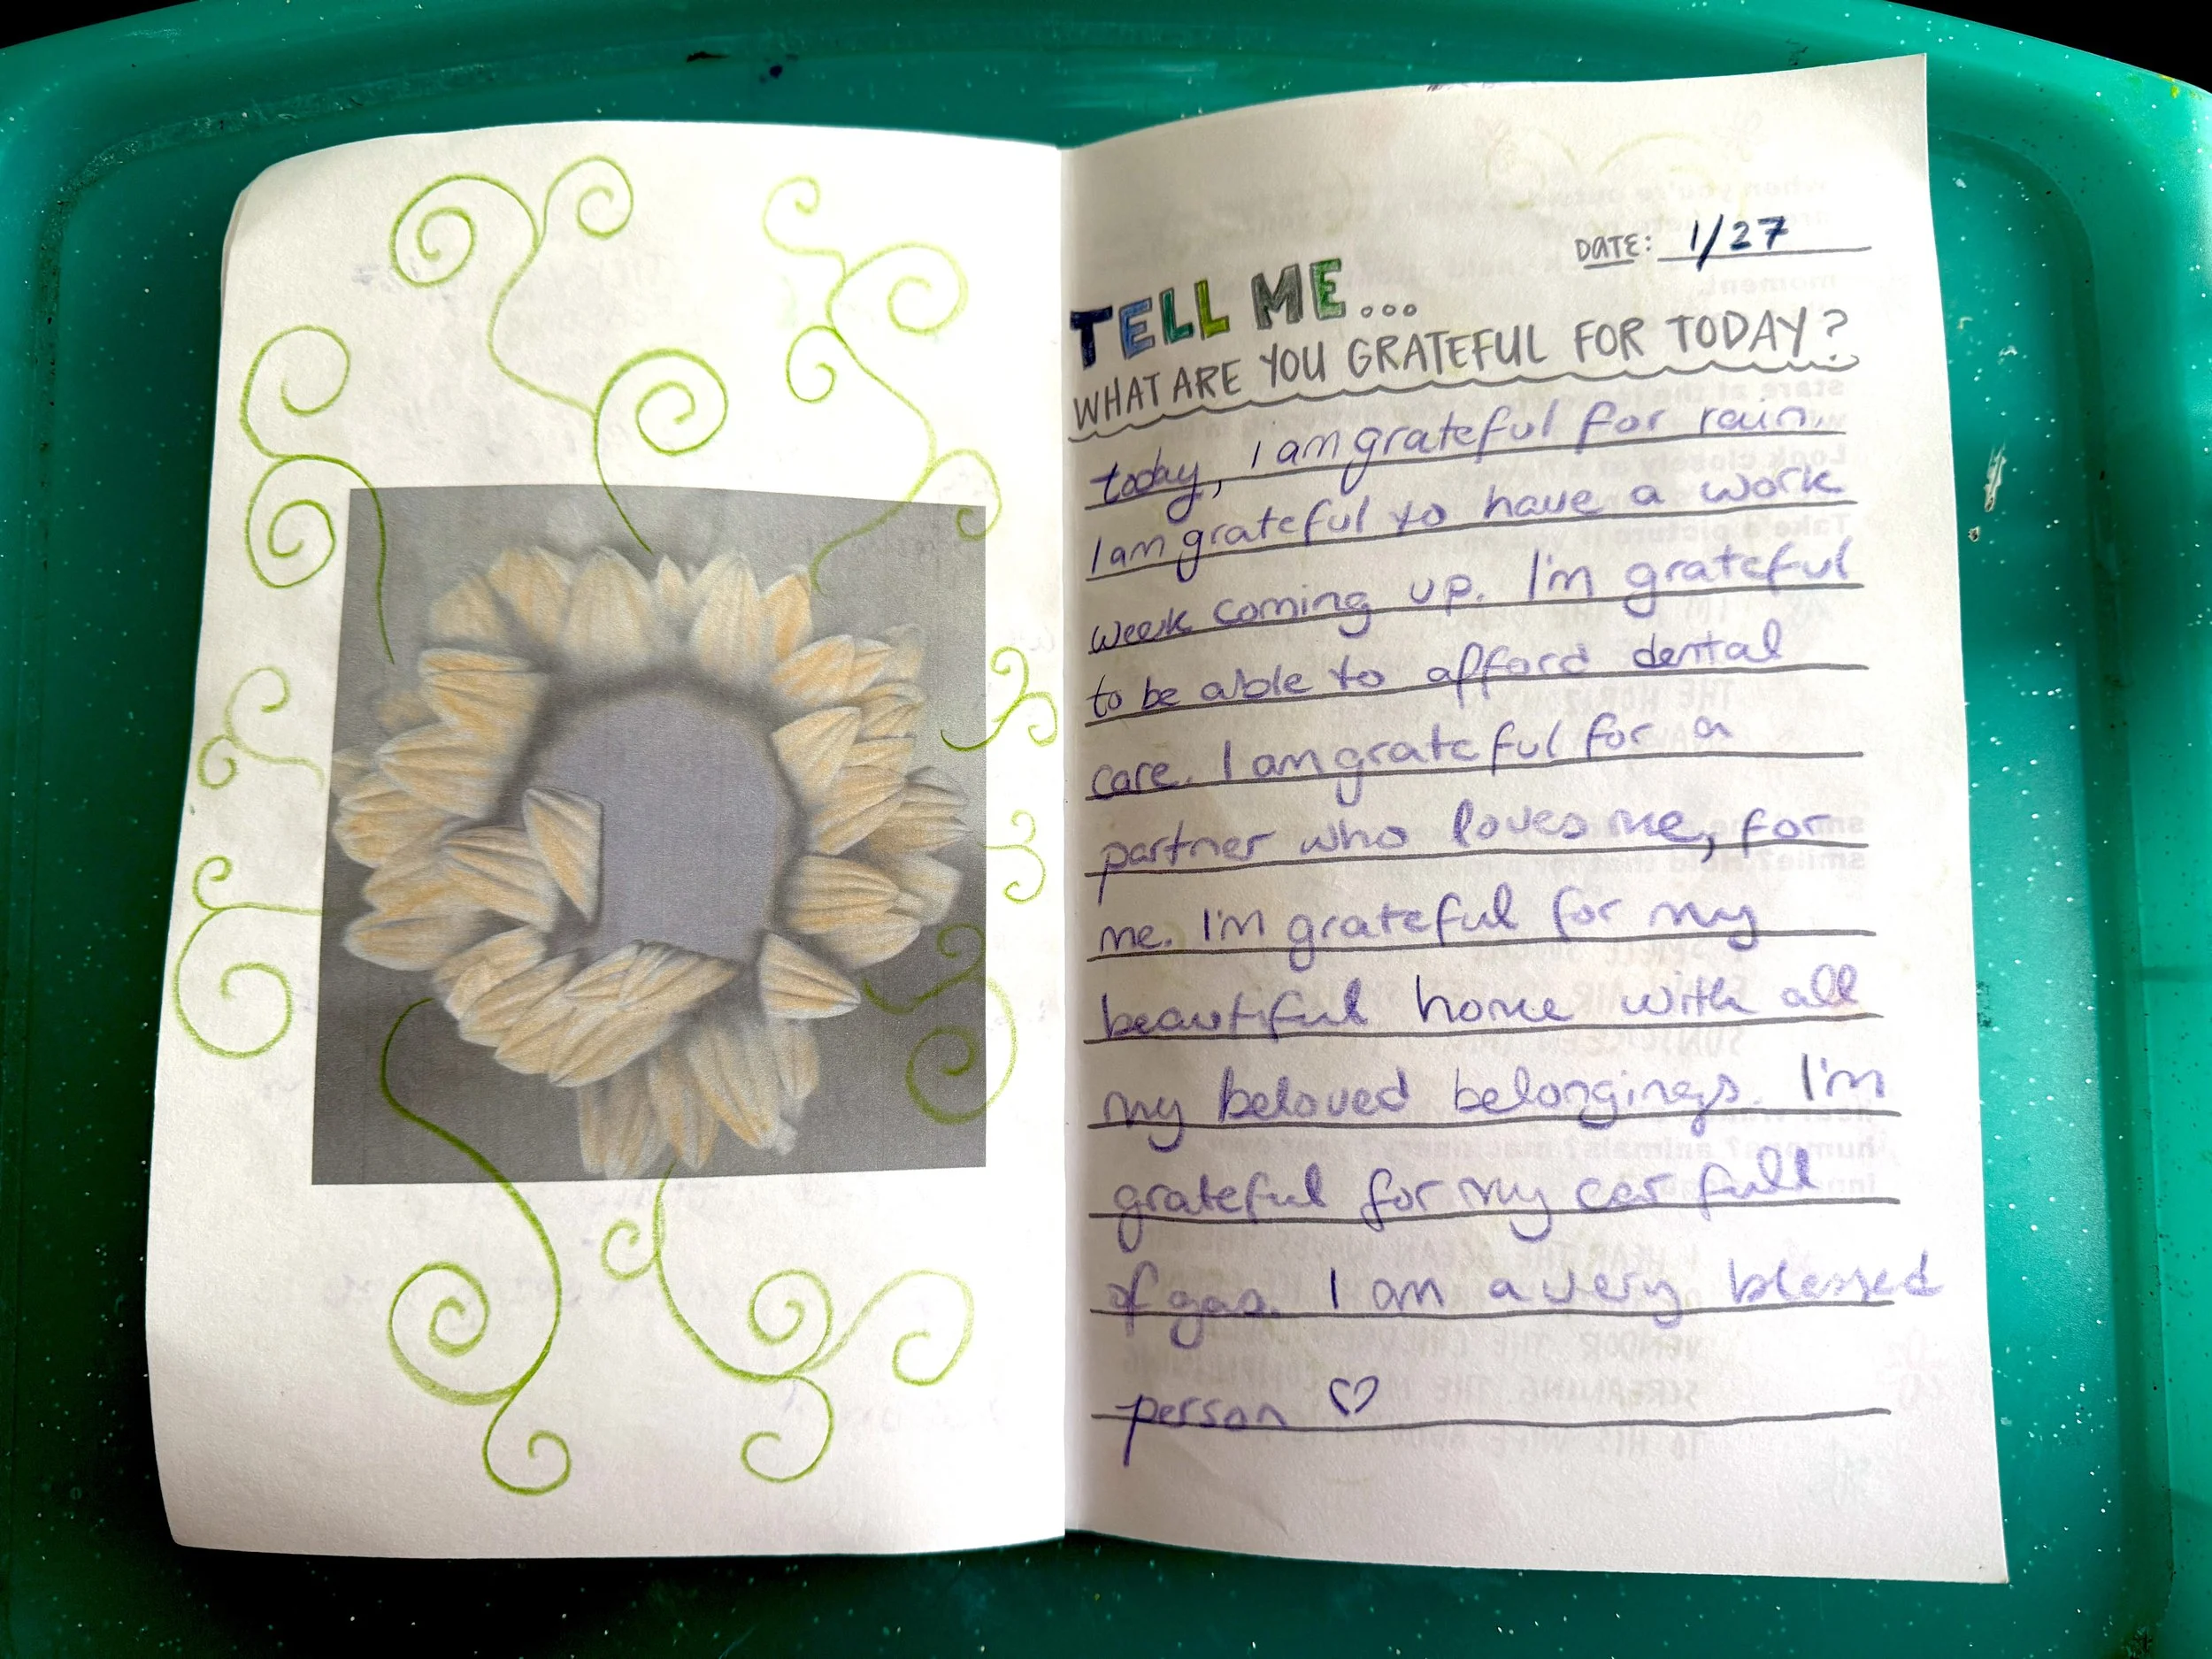 DATE: 1/27
TELL ME...
WHAT ARE YOU GRATEFUL FOR TODAY?
today, I am grateful for rain.
I am grateful to have a work
week coming up. I'm grateful
to be able to afford dental
care. I am grateful for a
partner who loves me, for
me. I'm grateful for my
beautiful home with all
my beloved belongings. I'm
grateful for my car full
of gas. I am a very blessed
person ♡